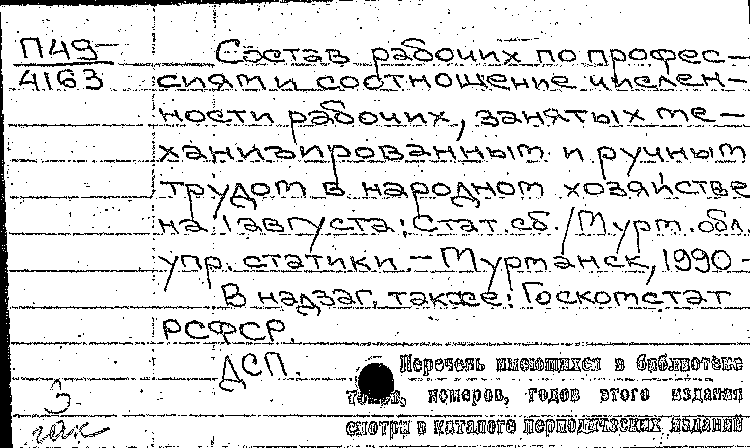 П49-
4163
Состав рабочих по профес-
сиям и соотношение числен-
ности рабочих, занятых ме-
ханизированным и ручным
трудом в народном хозяйстве
на 1 августа: Стат. сб. / Мурм. обл.
упр. статики. - Мурманск, 1990 -
В надзаг. также: Госкомстат
РСФСР.
ДСП.
Перечень имеющихся в библиотеке
томов, номеров, годов этого издания
смотри в каталоге периодических изданий
3